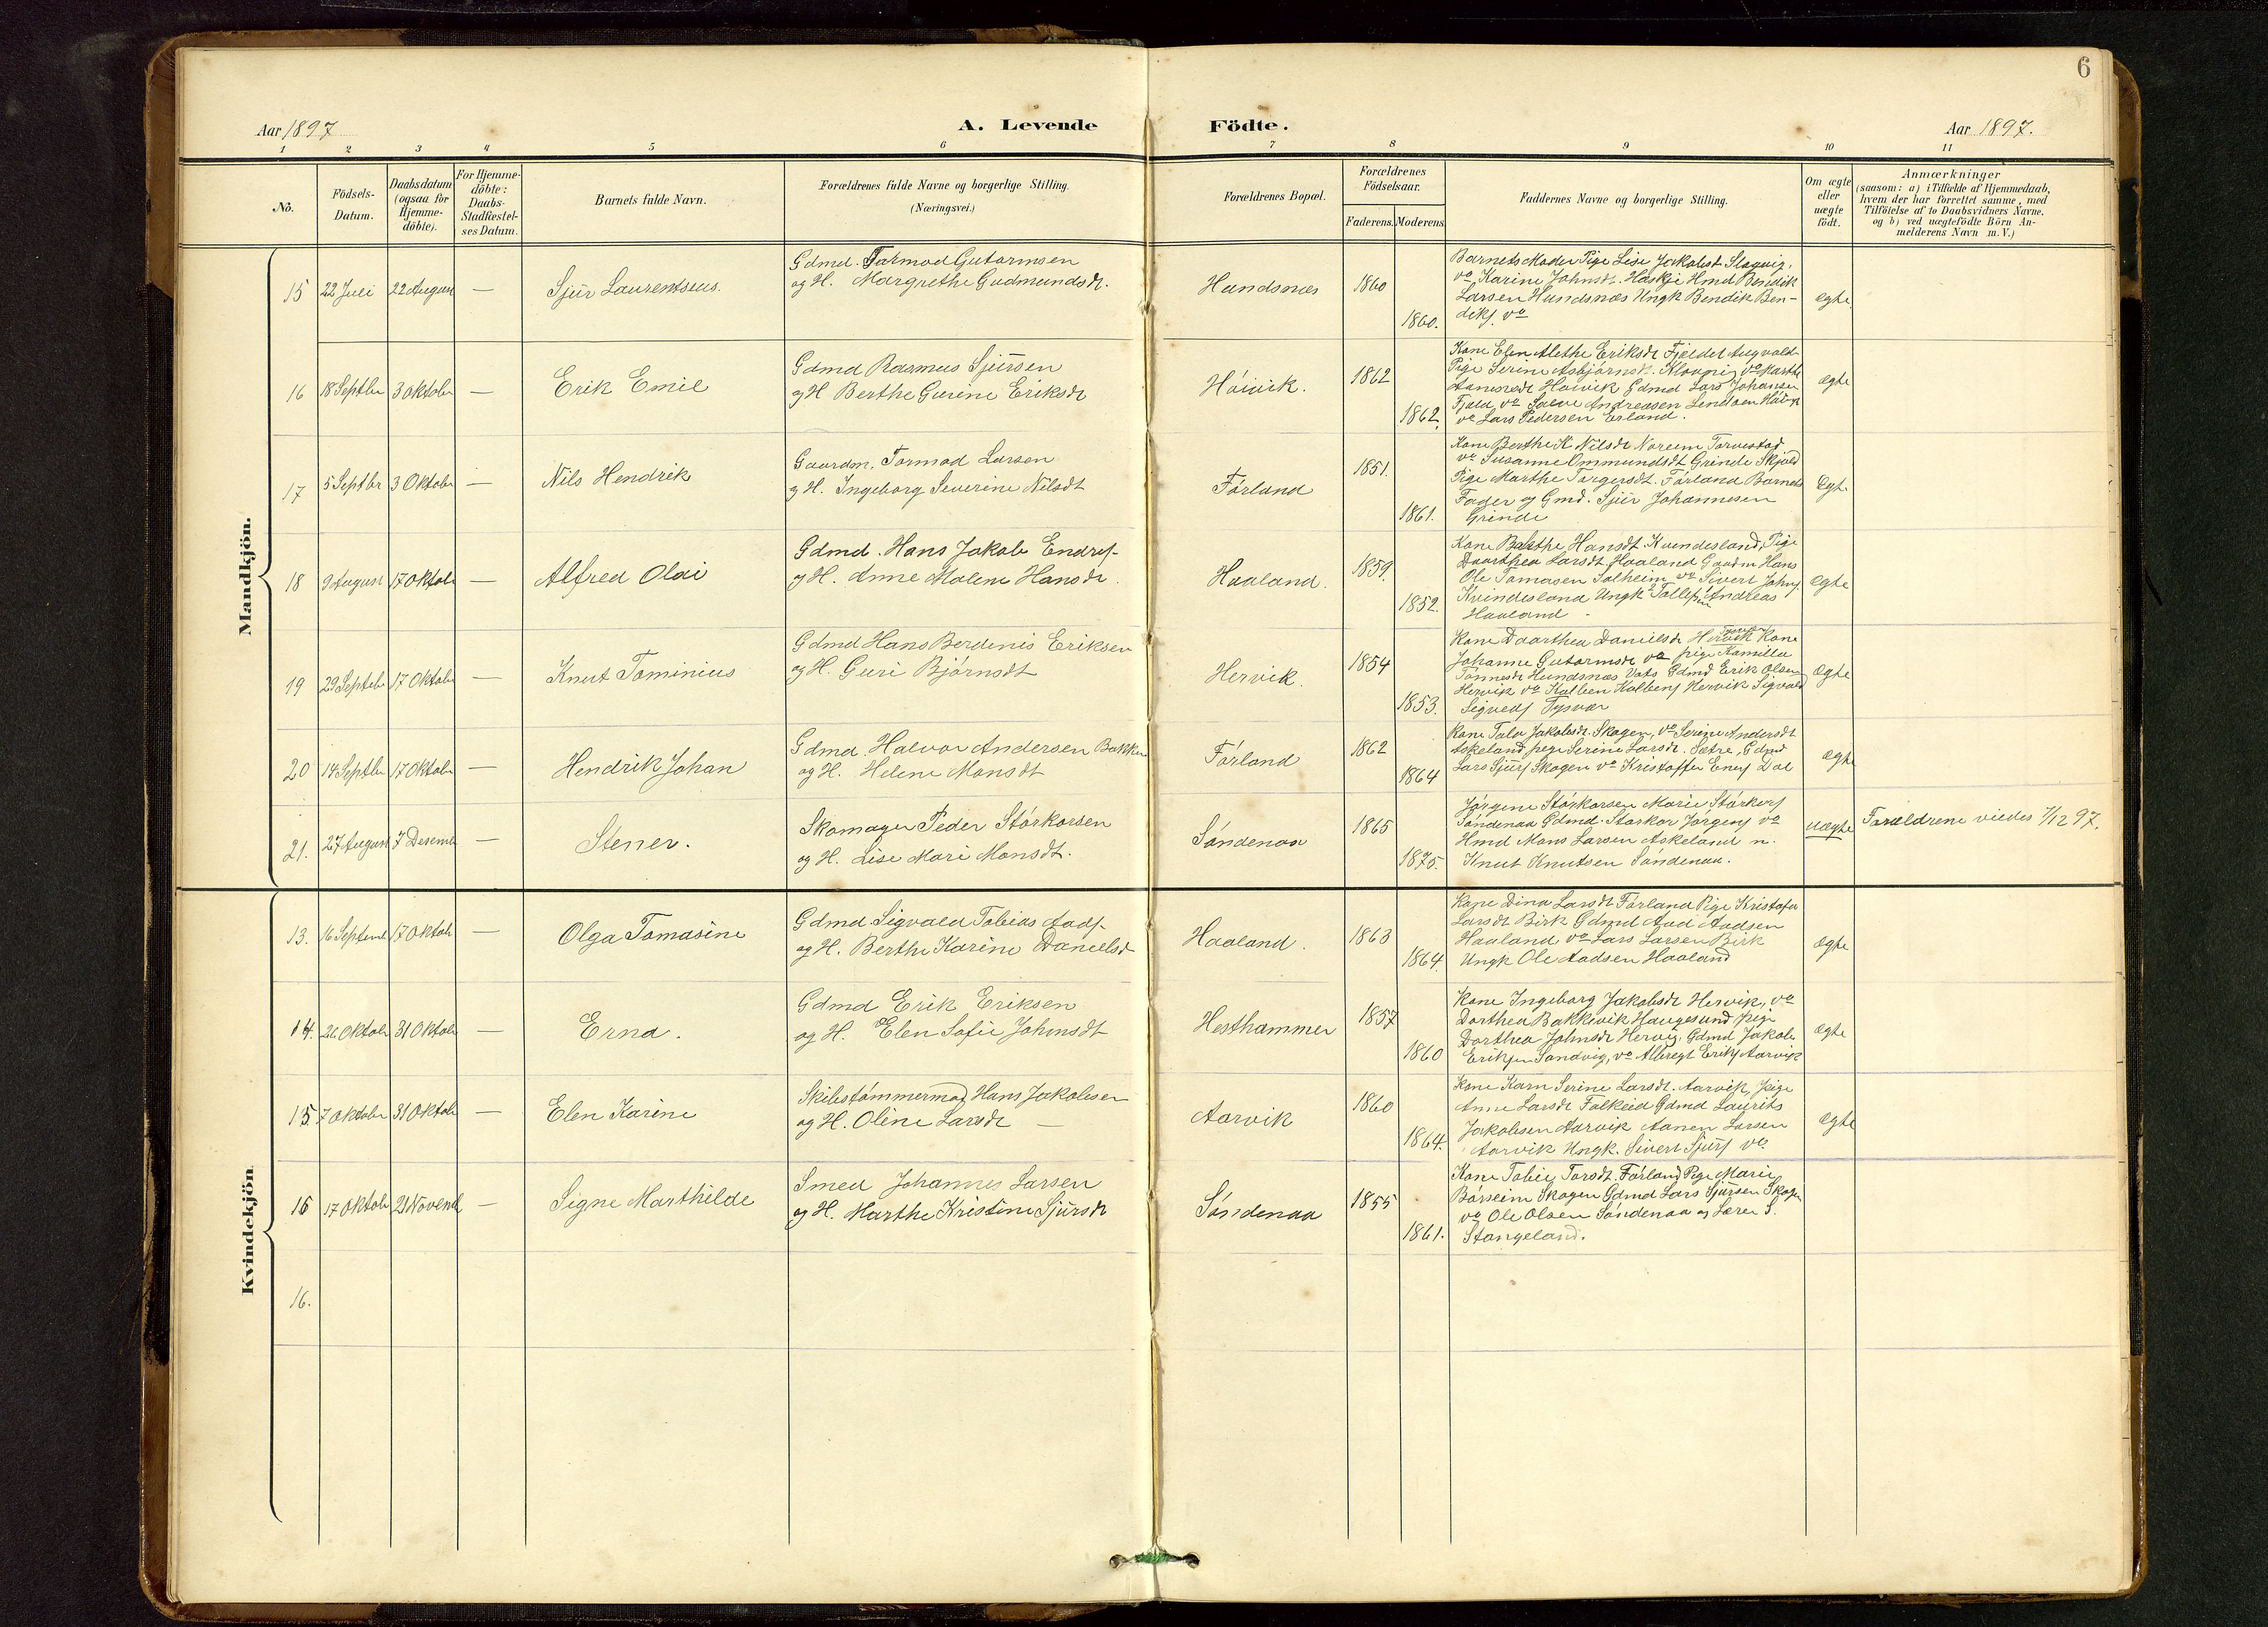 6
Aar 1897
A. Levende Födte.
Aar 1897.
1 2 3 4 5 6 7 8 9 10 11
No.
Födsels-
Datum.
Daabsdatum
(ogsaa for
Hjemme-
döbte).
For Hjemme-
döbte:
Daabs-
Stadfæstel-
ses Datum.
Barnets fulde Navn.
Forældrenes fulde Navne og borgerlige Stilling.
(Næringsvei.)
Forældrenes Bopæl.
Forældrenes
Födselsaar.
Faderens. Moderens.
Faddernes Navne og borgerlige Stilling.
Om ægte
eller
uægte
födt.
Anmærkninger
(saasom: a) i Tilfælde af Hjemmedaab,
hvem der har forrettet samme, med
Tilföielse af to Daabsvidners Navne,
og b) ved uægtefödte Börn An-
melderens Navn m. V.)
Mandkjön.
15 22 Juli 22 August — Sjur Laurentseus.
Gdmd. Tormod Gutormsen
og H. Margrethe Gudmundsdt.
Hundsnæs 1860 1860.
Barnets Moder Pige Lise Jakobsdt Slogvig,
vo Karine Johnsdt. Haskje Hmd Bendik
Larsen Hundsnæs Ungk Bendik Ben-
diks. vo
ægte
16 18 Septber 3 Oktober — Erik Emil
Gdmd Rasmus Sjursen
og H Berthe Gurine Eriksdt
Höivik. 1862 1862.
Kone Elen Alethe Eriksdt Fjeldet Augvald-
Pige Serine Asbjörnsdt. vo Marthe
Höivik Gdmd Lars Johansen
Fjeld vo Andreasen
vo Lars Pedersen Erland.
ægte
17 5 Septbr 3 Oktober — Nils Hendrik
Gaardm. Tormod Larsen
og H. Ingeborg Severine Nilsdt
Förland 1851. 1861.
Kone Berthe K Nilsdt Noreim Torvestad
vo Susanne Ommundsdt Grinde Skjold
Pige Marthe Torgersdt. Förland Barnets
Fader og Gmd. Sjur Johannesen
Grinde
Ægt.
18 9 August 17 Oktob — Alfred Olai
Gdmd. Hans Jakob Endres.
og H. Anne Malene Hansdt.
Haaland. 1859. 1852.
Kone Berthe Hansdt. Kvindesland, Pige
Daarthea Larsdt Haaland Gaardm Hans
Ole Tomasen Solheim vo Sivert Johns.
Kvindesland Ungk Tollefsen Andreas
Haaland
ægte
19 29 Septebr 17 Oktober — Knut Tominius
Gdmd Hans Berdenis Eriksen
og H. Guri Björnsdt
Hervik. 1854 1853.
Kone Daarthea Danielsdt Hervik Kone
Johanne Gutormsdt vo pige Kamilla
Tonnesdt Hundsnæs Vats Gdmd Erik Olsen
Hervik vo Kolben Kolbens Hervik Sigvald
Sigveds Tysvær
Ægte
20 14 Septber 17 Oktober — Hendrik Johan
Gdmd. Halvor Andersen Bakke
og H. Helene Monsdt
Förland 1862 1864
Kone Tala Jakobsdt. Skogen, vo Serine Andersdt
Askeland pige Serine Larsdt. Sætre, Gdmd
Lars Sjurs Skogen vo Kristoffer Eners Dal
ægte
21. 27 August 7 Desemb — Stener.
Skomager Peder Störkorsen
og H. Lise Mari Monsdt.
Söndenaa 1865 1875.
Jörgine Störkorsen Marie Störkors
Söndenaa Gdmd. Störkor Jörgens vo
Hmd Mons Larsen Askeland n.
Knut Knutsen Söndenaa.
uægte
Forældrene viedes 7/12 97.
Kvindekjön
13. 16 Septemb 17 Oktob — Olga Tomasine
Gdmd. Sigvald Tobias Aads.
og H. Berthe Karine Danielsdt
Haaland. 1863 1864.
Kone Dina Larsdt Förland Pige Kristofa
Larsdt Birk Gdmd Aad Aadsen
Haaland vo Lars Larsen Birk
Ungk Ole Aadsen Haaland
ægte
14. 26 Oktober 31 Oktober — Erna.
Gdmd Erik Eriksen
og H. Elen Sofie Johnsdt
Hesthammer 1857 1860
Kone Ingeborg Jakobsdt Hervik, vo
Dorthea Bakkevik Haugesund pige
Dorthea Johnsdt Hervig, Gdmd Jakob
Eriksen Sandvig, vo Albregt Eriks Aarvik
ægte
15. 7 Oktober 31 Oktob — Elen Karine
Skibstömmermad Hans Jakobsen
og H. Oline Larsdt —
Aarvik 1860 1864.
Kone Karn Serine Larsdt. Aarvik, pige
Anne Larsdt Falkeid Gdmd Laurits
Jakobsen Aarvik Aanen Larsen
Aarvik Ungk. Sivert Sjurs vo
ægte
16 17 Oktob 21 Novemb — Signe Marthilde
Smed Johannes Larsen
og H. Marthe Kristine Sjursdt
Söndenaa 1855 1861.
Kone Tobia Torsdt. Förland Pige Marie
Börseim Skogen Gdmd Lars Sjursen Skogen
vo Ole Olsen Söndenaa og Lærer S.
Stangeland.
16.